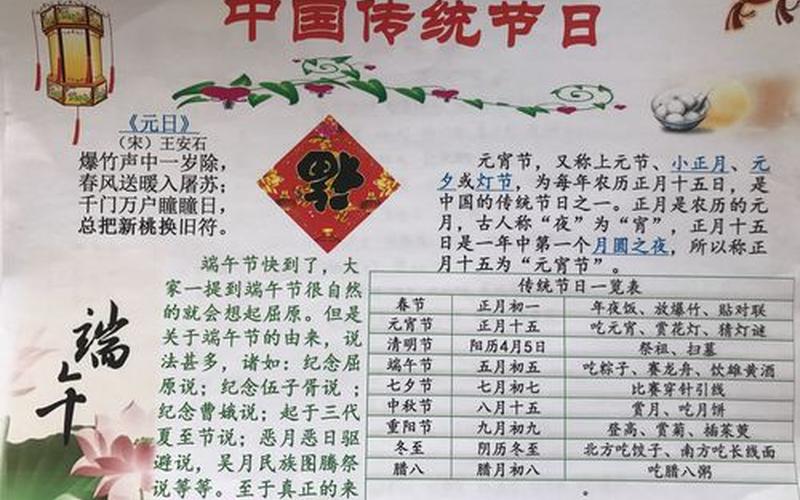 中国传统节日
《元日》
（宋）王安石
爆竹声中一岁除，
春风送暖入屠苏；
千门万户瞳瞳日，
总把新桃换旧符。
福
元宵节，又称上元节、小正月、元
夕或灯节，为每年农历正月十五日，是
中国的传统节日之一。正月是农历的元
月，古人称“夜”为“宵”，正月十五
日是一年中第一个月圆之夜，所以称正
月十五为“元宵节”。
端午
端午节快到了，大
家一提到端午节很自然
的就会想起屈原。但是
关于端午节的由来，说
法甚多，诸如：纪念屈
原说；纪念伍子胥说；
纪念曹娥说；起于三代
夏至节说；恶月恶日驱
避说，吴月民族图腾祭
说等等。至于真正的来
传统节日一览表
春节 正月初一 年夜饭、放爆竹、贴对联
元宵节 正月十五 吃元宵、赏花灯、猜灯谜
清明节 阳历4月5日 祭祖、扫墓
端午节 五月初五 吃粽子、赛龙舟、饮雄黄酒
七夕节 七月初七 比赛穿针引线
中秋节 八月十五 赏月、吃月饼
重阳节 九月初九 登高、赏菊、插茱萸
冬至 阴历冬至 北方吃饺子、南方吃长线面
腊八 腊月初八 吃腊八粥